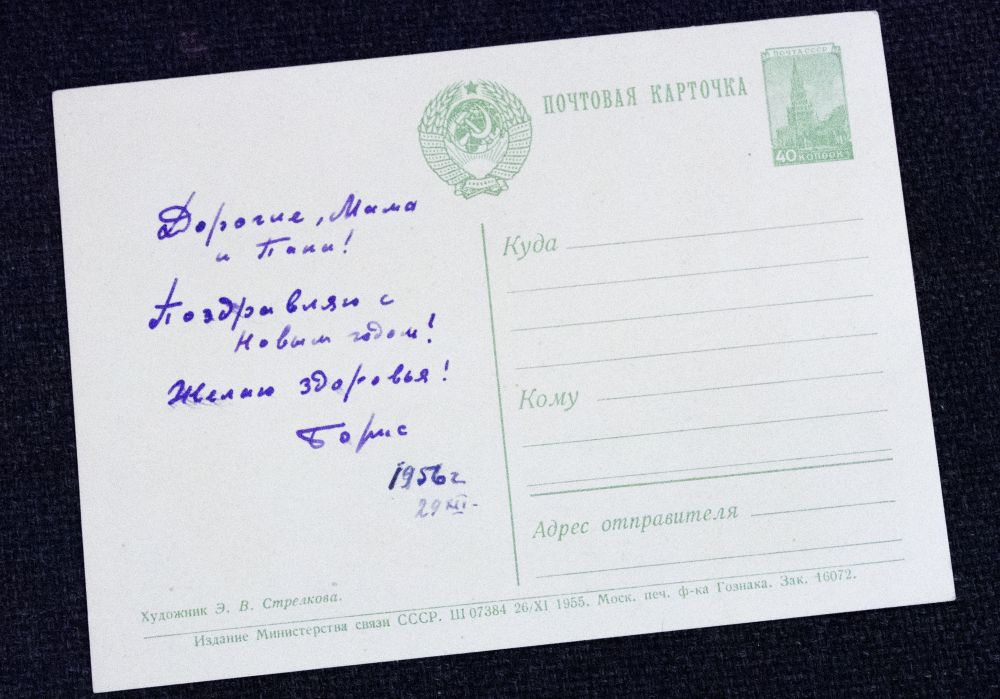 ПОЧТА СССР
ПОЧТОВАЯ КАРТОЧКА
40 КОПЕЕК
Дорогие, Мама
и Папа!
Поздравляю с
Новым годом!
Желаю здоровья!
Борис
1956 г
29 XII.
Куда
Кому
Адрес отправителя
Художник Э. В. Стрелкова.
Издание Министерства связи СССР. Ш 07384 26/XI 1955. Моск. печ. ф-ка Гознака. Зак. 16072.